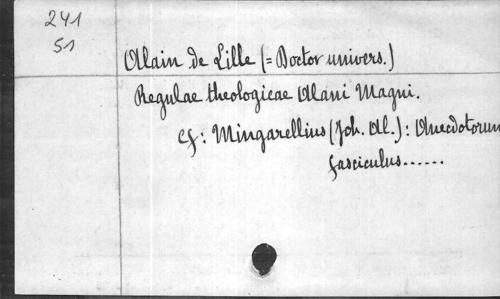 241
51
Alain de Lille (= Doctor univers.)
Regulae theologicae Alani Magni.
cf: Mingarellius (Joh. Al.): Anecdotorum
fasciculus......